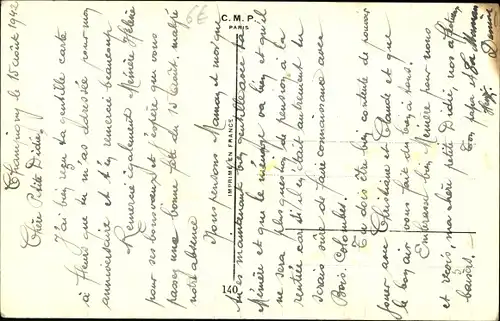 Chamigny le 15 Août 1942
Chère Petite Didie,
J'ai bien reçu ta gentille carte
à fleurs que tu m'as adressée pour mon
anniversaire et t'en remercie beaucoup
Remercie également Mémère Hélène
pour ses bons vœux et j'espère que vous
passez une bonne fête du 15 Août, malgré
notre absence
Nous pensons Maman et moi que
tu es maintenant bien gentille avec ta
Mémère et que le ménage va bien et qu'il
ne sera plus question de pension à la
rentrée car s'il en était autrement tu
serais sûre de faire connaissance avec
Bois-Colombes.
Tu dois être bien contente de pouvoir
jouer avec Christiane et Claude et que
le bon air vous fait du bien à tous.
Embrasse bien Mémère pour nous
et reçois, ma chère petite Didie, nos affectueux
baisers.
Ton papa et ta Maman
C.M.P.
PARIS
IMPRIMÉ EN FRANCE
140
6€